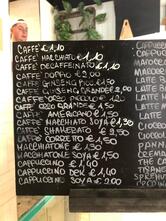 CAFFE' €1,10
CAFFE' MACCHIATO €1,10
CAFFE' DECAFFEINATO €1,10
CAFFE' DOPPIO €2,00
CAFFE' GINSENG PICC. €1,50
CAFFE' GINSENG GRANDE €2,00
CAFFE' ORZO PICCOLO €
CAFFE' ORZO GRANDE €1,50
CAFFE' AMERICANO €1,50
CAFFE' MACCHIATO SOYA €1,30
CAFFE' SHAKERATO €2,50
CAFFE' CORRETTO €1,50
MACCHIATONE €1,30
MACCHIATONE SOYA €1,50
CAPPUCCINO €1,40
CAPPUCCINO DEK €1,40
CAPPUCCINO SOYA €2,00
CAPPUCC
CAPPUC
MAROCC
MAROCC
LATTE
LATTE BI
LATTE
LATTE
CIOCCO
CIOCCO
PANN
CREMA